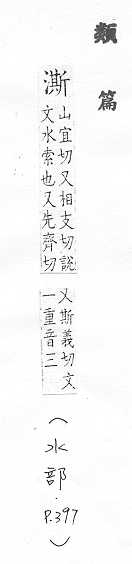 類篇
澌
山宜切又相支切說
文水索也又先齊切
又斯義切文
一重音三
（水部．P.397）